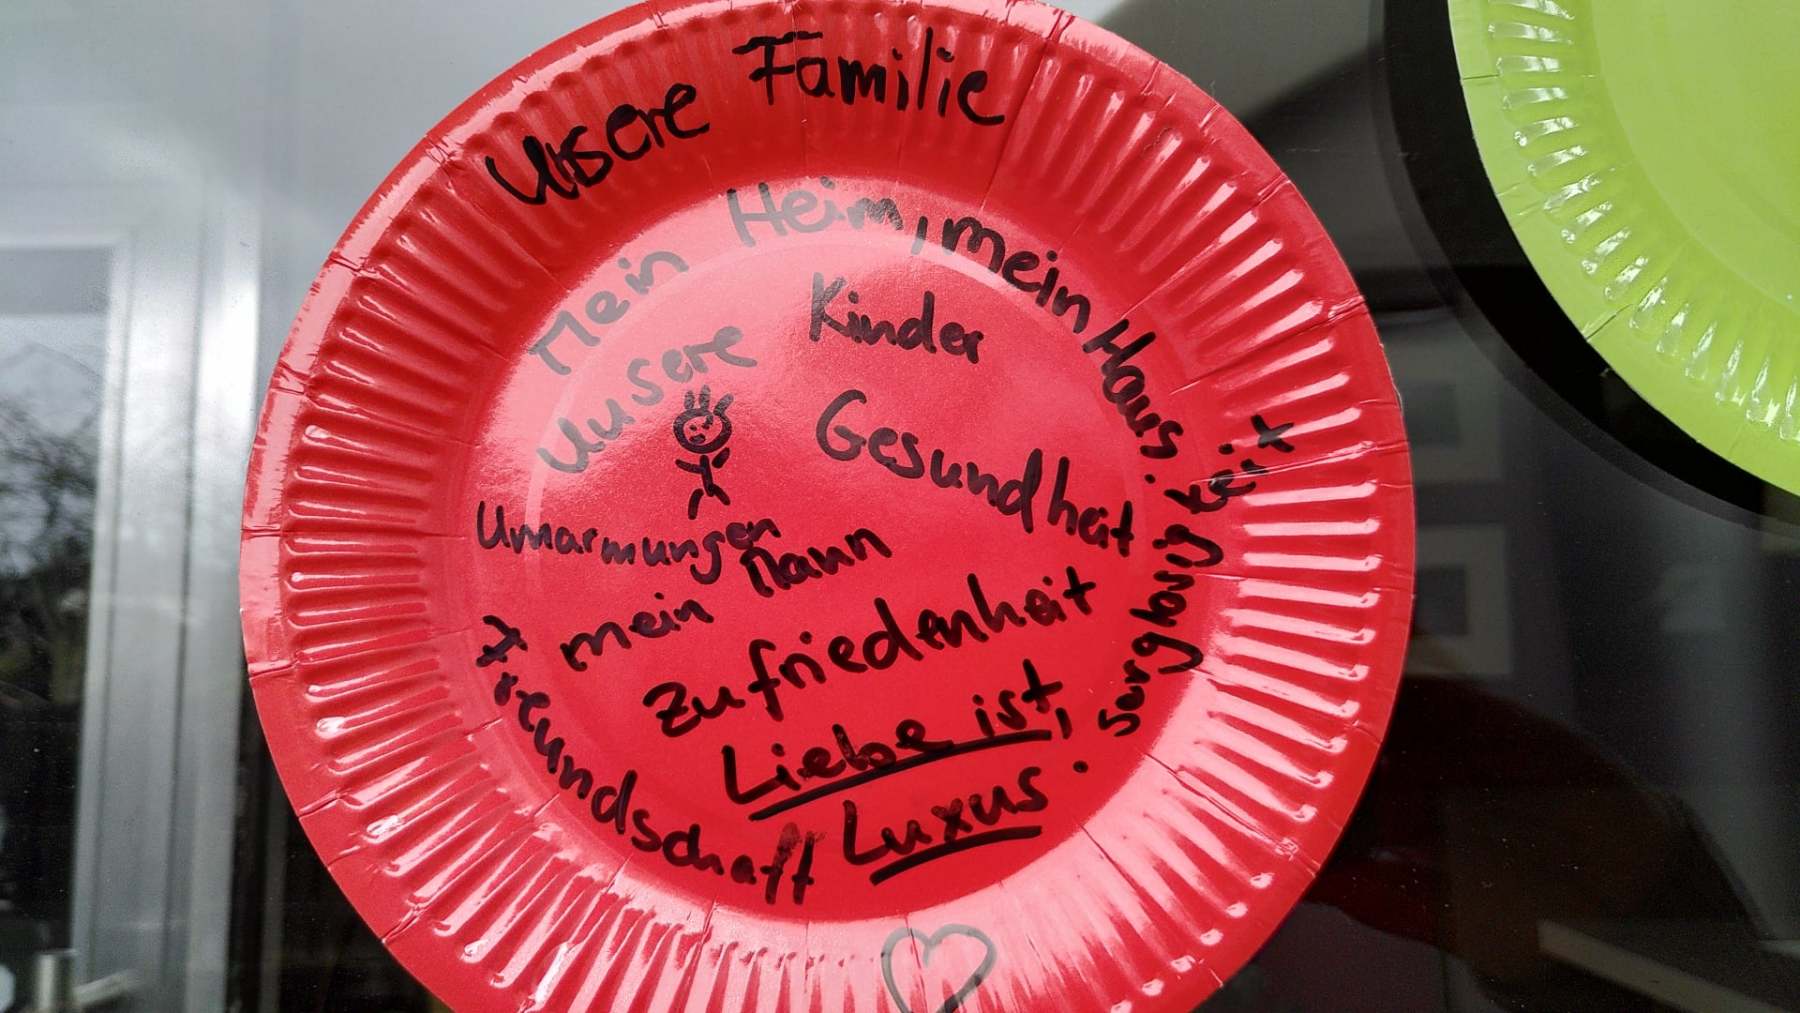 Unsere Familie
Mein Heim, mein Haus.
Unsere Kinder
Gesundheit
Umarmungen
mein Mann
Zufriedenheit
Liebe ist,
Luxus.
Freundschaft